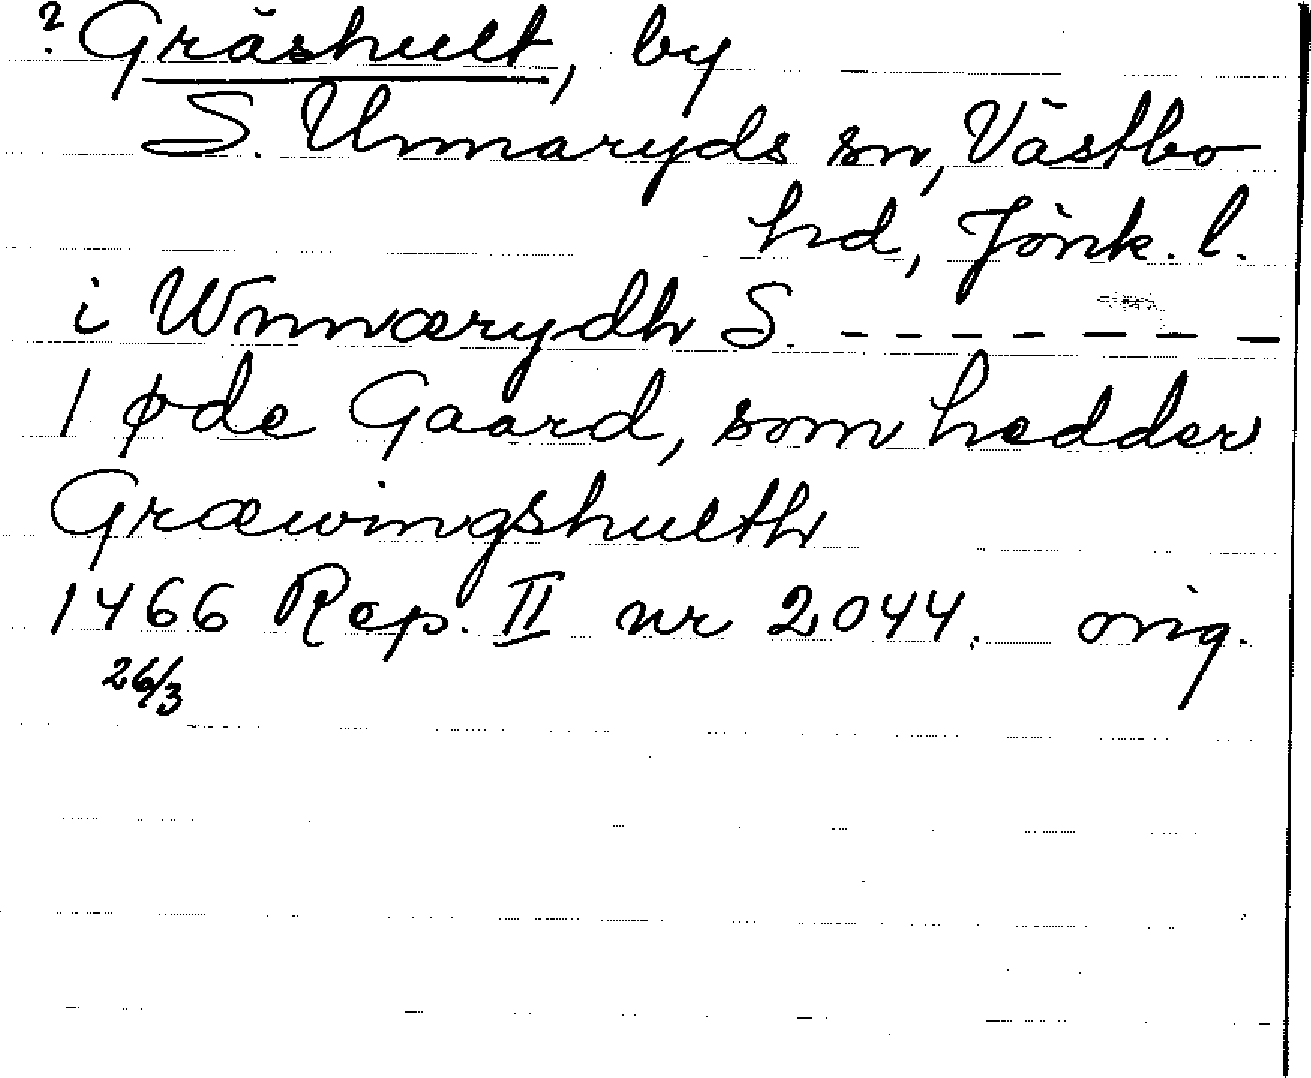 ? Gräshult, by
S. Unnaryds sn, Västbo
hd, Jönk. l.
i Wnnærydh S. - - - - - - -
1 øde Gaard, som hedder
Græwingshulth
1466 Rep. II nr 2044. orig.
26/3